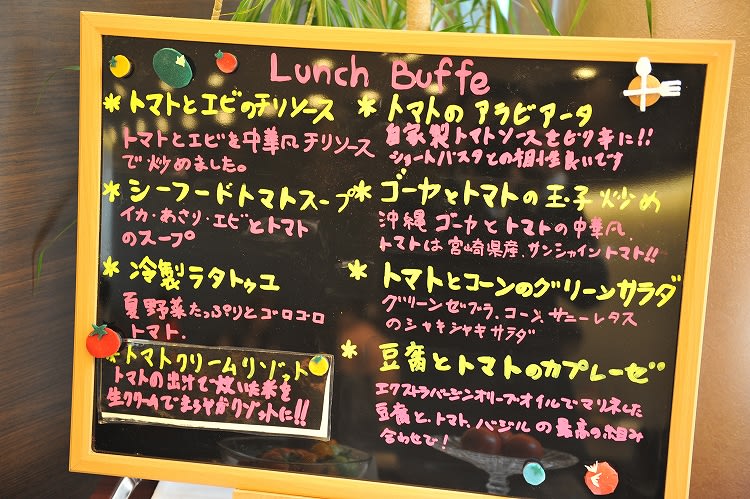 Lunch Buffe
* トマトとエビのチリソース
トマトとエビを中華風チリソース
で炒めました。
* シーフードトマトスープ
イカ・あさり・エビとトマト
のスープ
* 冷製ラタトゥユ
夏野菜たっぷりとゴロゴロ
トマト.
* トマトクリームリゾット
トマトの出汁で炊いた米を
生クリームでまろやかリゾットに!!
* トマトのアラビアータ
自家製トマトソースをピリ辛に!!
ショートパスタとの相性良いです
* ゴーヤとトマトの玉子炒め
沖縄ゴーヤとトマトの中華風.
トマトは宮崎県産.サンシャイントマト!!
* トマトとコーンのグリーンサラダ
グリーンゼブラ.コーン.サニーレタス
のシャキシャキサラダ
* 豆腐とトマトのカプレーゼ
エクストラバージンオリーブオイルでマリネした
豆腐と.トマト.バジルの最高の組み
合わせで!